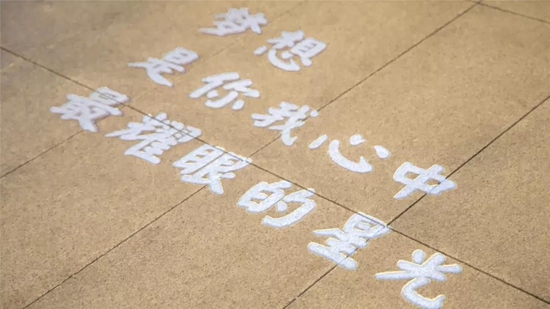 梦想
是你我心中
最耀眼的星光